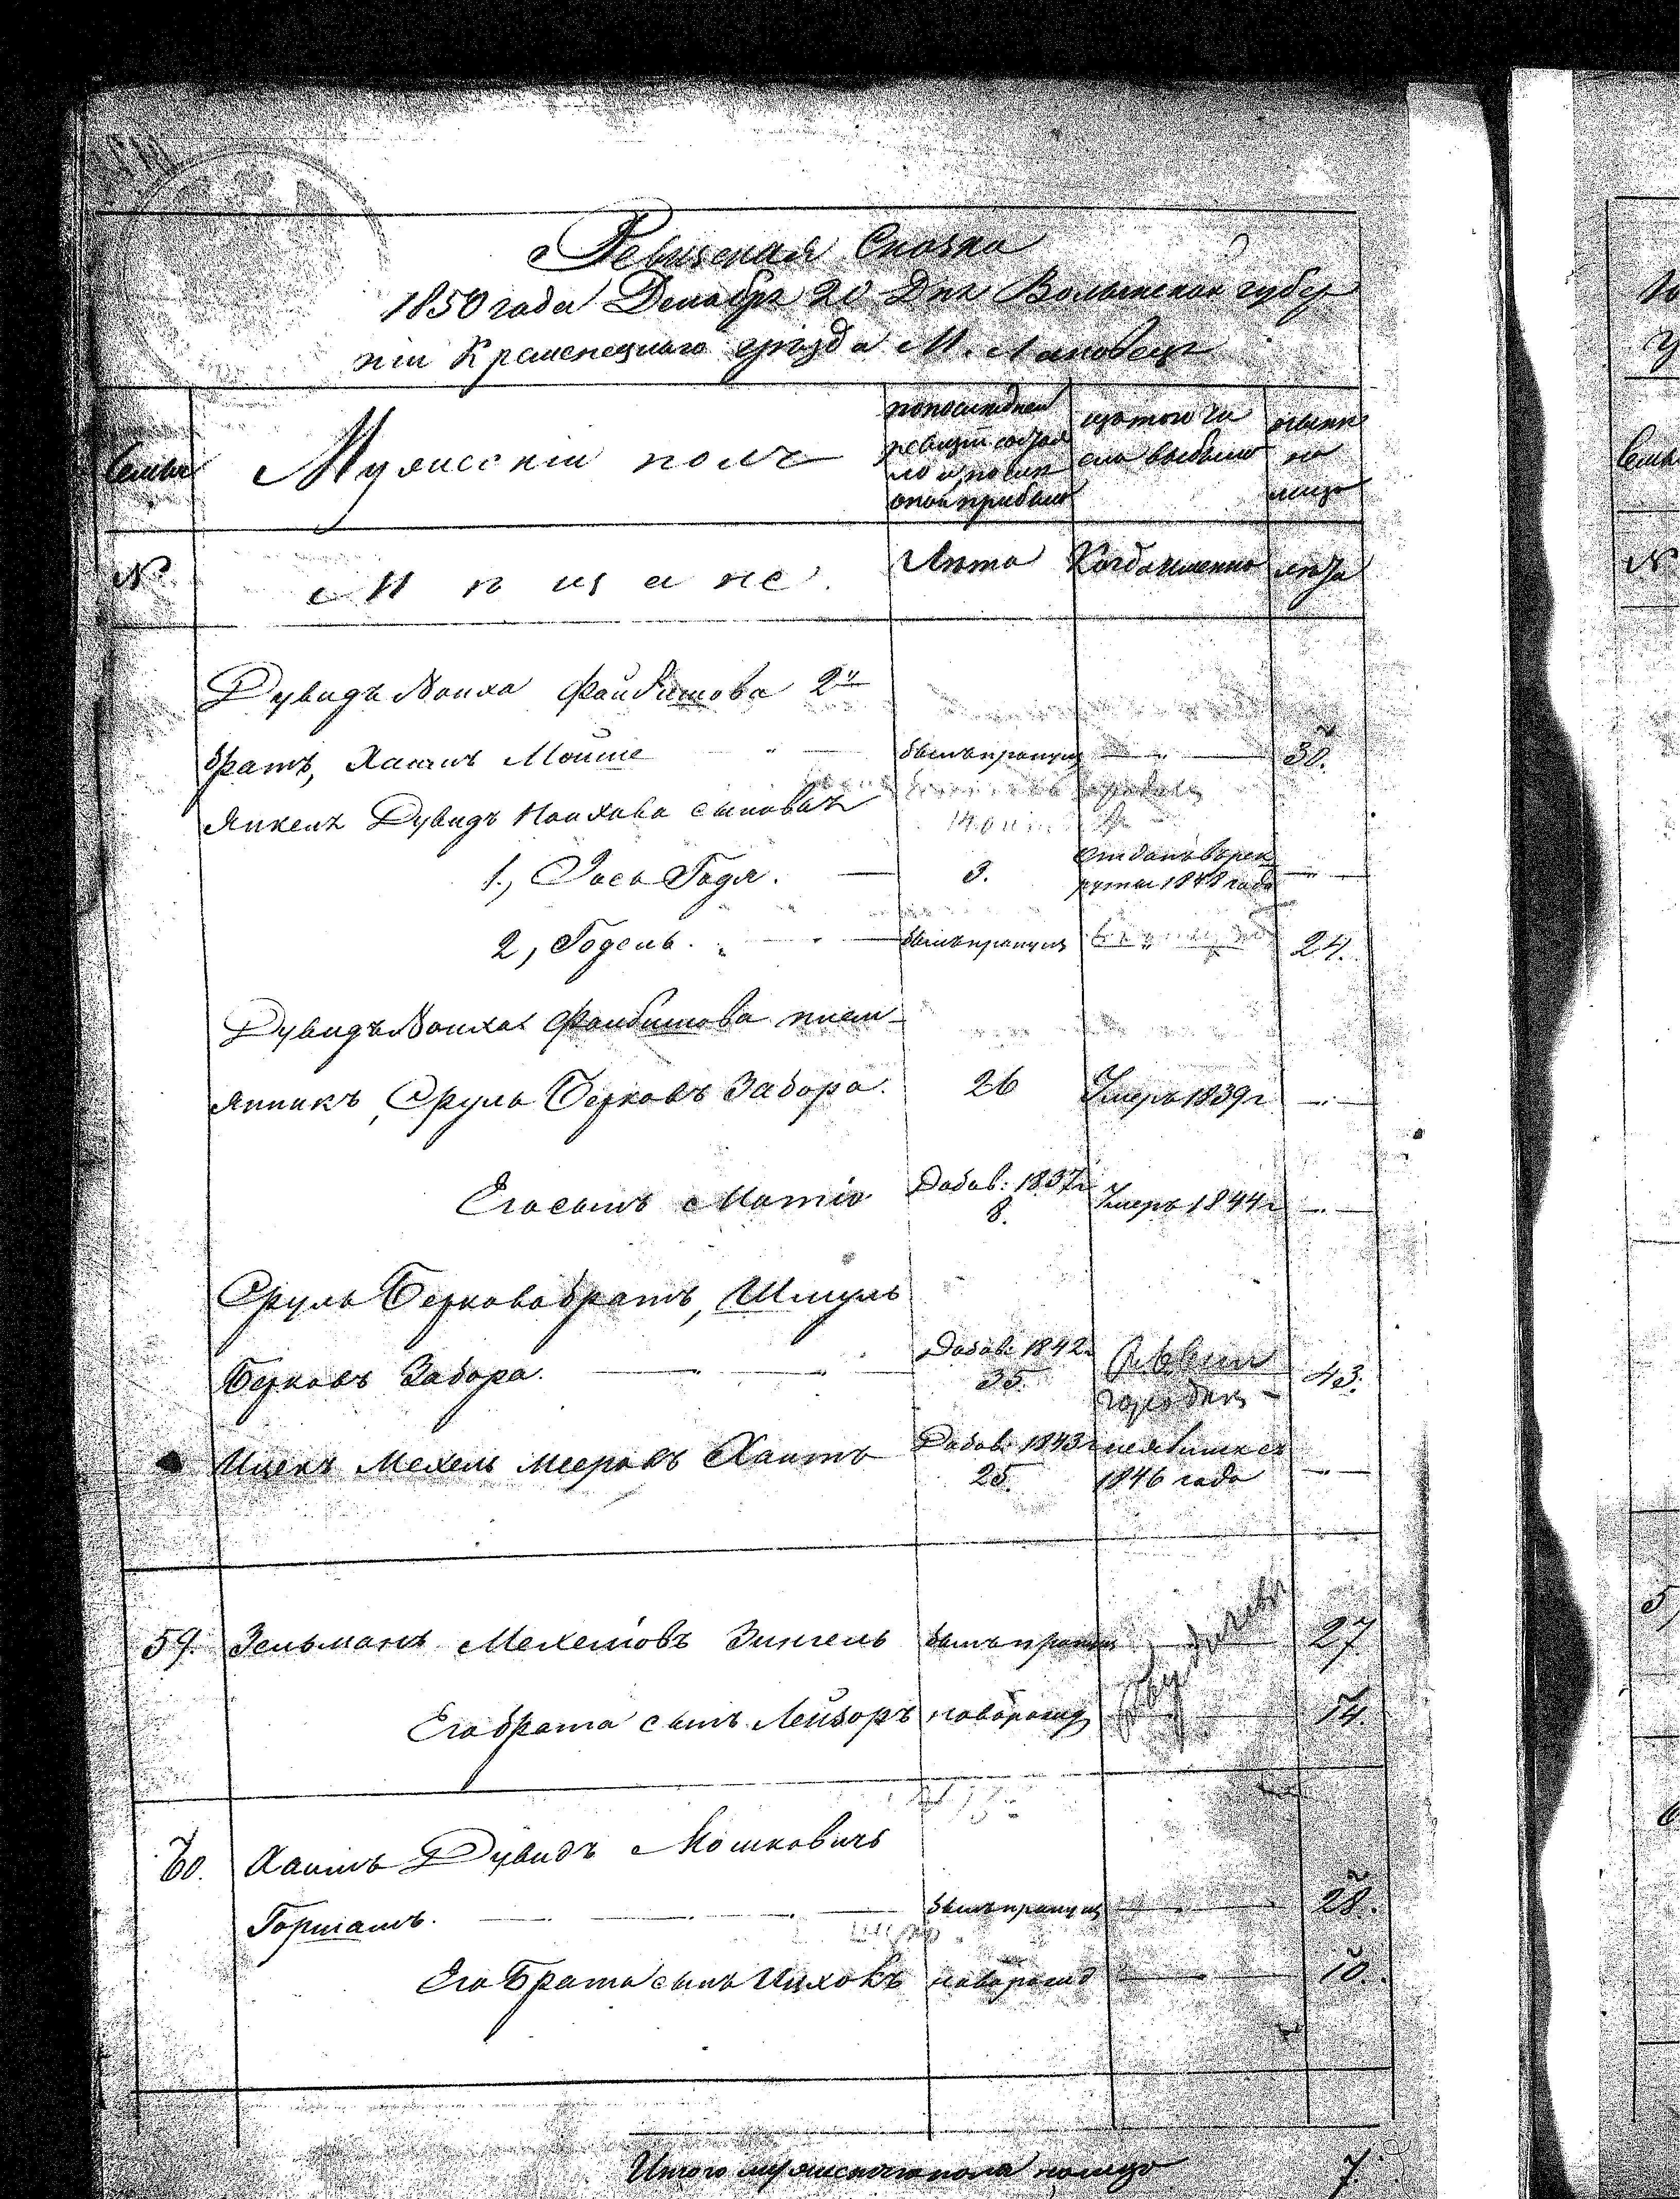 Ревизская Сказка
1850 года Декабря 20 Дня Волынской губер
нии Кременецкаго уезда М. Лановец
Семьи
Мужескій полъ
по последней
ревизіи состоя
ло и после
оной прибыло
изъ того чи
сла выбыло
ныне
на
лицо
№
Мещане.
Лета
Когда именно
лета
Дувидъ Файбишова 2й
братъ, Хаимъ Мойше
былъ пропущ
30.
Янкеля Дувидъ сыновья
1., Иось Годя.
3.
Отданъ в рек
руты 1848 года
2, Годель.
былъ пропущ
24.
Дувидъ Файбишова плем
янникъ, Сруль Берковъ Забора.
26
Умеръ 1839 г
Его сынъ Мотіо
Добав: 1837 г
8.
Умеръ 1844 г
Сруля Беркова братъ, Шмуль
Берковъ Забора.
Добав: 1842 г
35.
43.
Ицекъ Мехель Мееровъ Хаитъ
Добав: 1843 г
25.
1846 года
59.
Зельманъ Мехелювъ Зингель
былъ пропущ
27
Его брата сынъ Лейзоръ
новорожд
14.
60.
Хаимъ Дувидъ Мошковичъ
Горшамъ.
былъ пропущ
28.
Его Брата сынъ Ицхокъ
новорожд
10.
Итого мужескаго пола на лицо
7